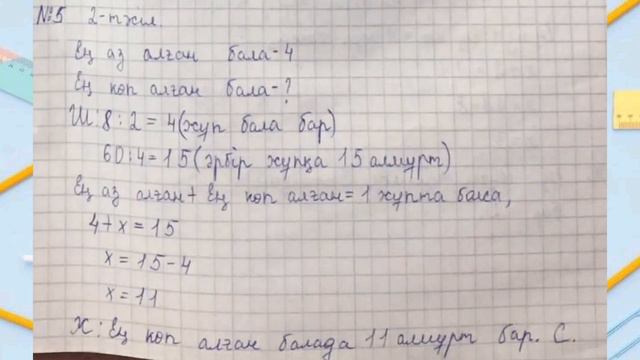 №5 2-тәсіл.
Ең аз алған бала-4
Ең көп алған бала-?
Ш: 8:2=4(жұп бала бар)
60:4=15(әрбір жұпқа 15 алмұрт)
Ең аз алған+Ең көп алған=1 жұпта бала,
4+x=15
x=15-4
x=11
Ж: Ең көп алған балада 11 алмұрт бар. С.